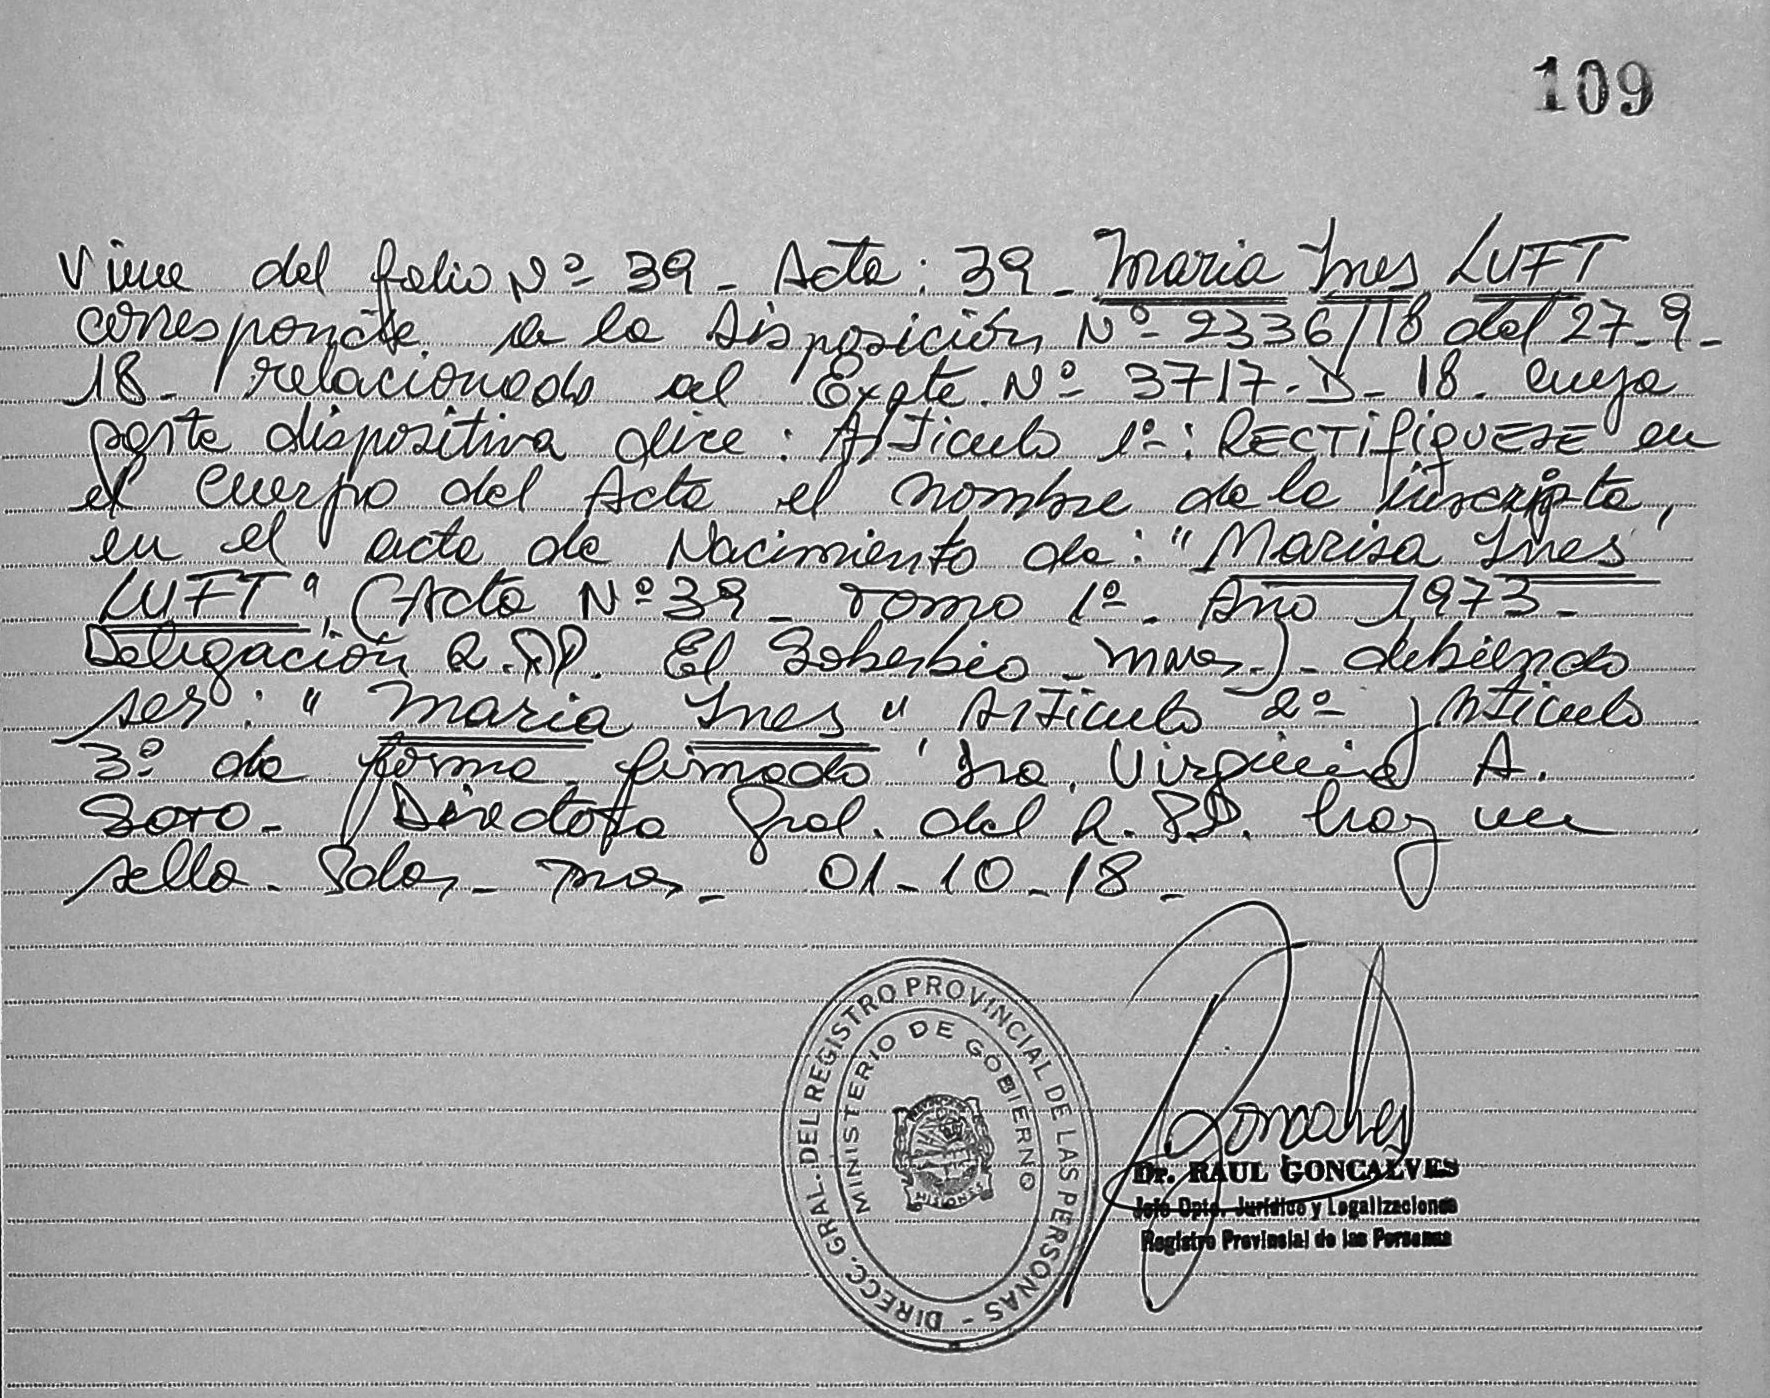 109
Viene del folio Nº 39 - Acta: 39 - Maria Ines LUFT
corresponde a la Disposición Nº 2336/18 del 27-9-
18- relacionado al Expte. Nº 3717-D-18- cuya
parte dispositiva dice: Articulo 1º: RECTIFIQUESE en
el cuerpo del Acta el nombre de la inscripta,
en el acta de Nacimiento de: "Marisa Ines
LUFT", (Acta Nº 39 - Tomo 1º - Año 1973-
Delegación R.PP. El Soberbio - Mnes.)- debiendo
ser: "Maria Ines" Articulo 2º y Articulo
3º de forma, firmado Sra. Virginia A.
Soto- Directora Gral. del R.P.P. hay un
sello- Pdas,- Mnes,- 01-10-18-
DIRECC. GRAL. DEL REGISTRO PROVINCIAL DE LAS PERSONAS -
MINISTERIO DE GOBIERNO
Goncalves
Dr. RAUL GONCALVES
Jefe Dpto. Jurídico y Legalizaciones
Registro Provincial de las Personas